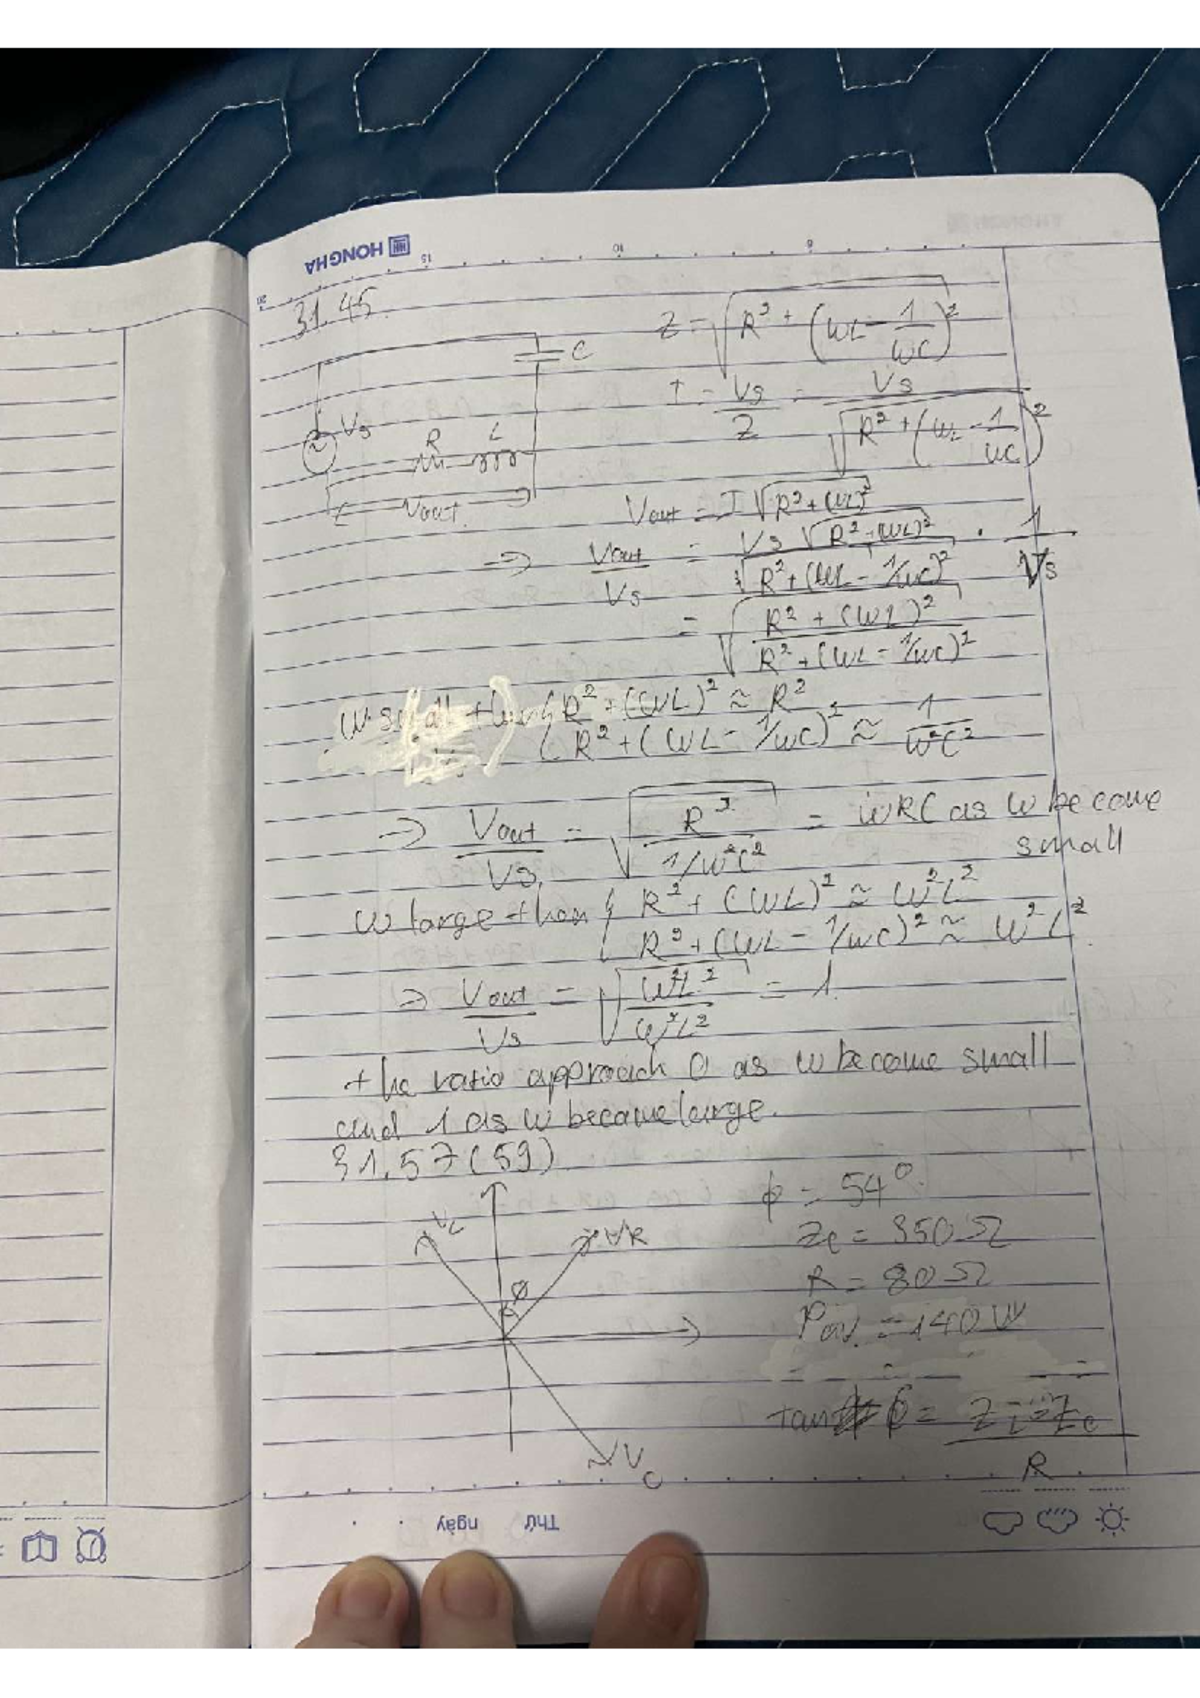 HONG HA
20 15 10 5
31.45.
C
Vs
R L
Vout
Z = √(R² + (WL - 1/WC)²)
I = Vs/Z = Vs/√(R² + (WL - 1/WC)²)
Vout = I √(R² + (WL)²)
=> Vout/Vs = Vs √(R² + (WL)²)/√(R² + (WL - 1/WC)²) · 1/Vs
= √((R² + (WL)²)/(R² + (WL - 1/WC)²))
W small then { R² + (WL)² ≈ R²
R² + (WL - 1/WC)² ≈ 1/W²C²
=> Vout/Vs = √(R²/(1/W²C²)) = WRC as W become
small
W large then { R² + (WL)² ≈ W²L²
R² + (WL - 1/WC)² ≈ W²L².
=> Vout/Vs = √(W²L²/W²L²) = 1.
the ratio approach 0 as W become small
and 1 as W become large.
31.57 (59)
VL
VR
ϕ
VC
ϕ = 54°.
Zc = 350 Ω
R = 80 Ω
Pav. = 140 W
tan ϕ = (ZL - Zc)/R
Thứ ngày